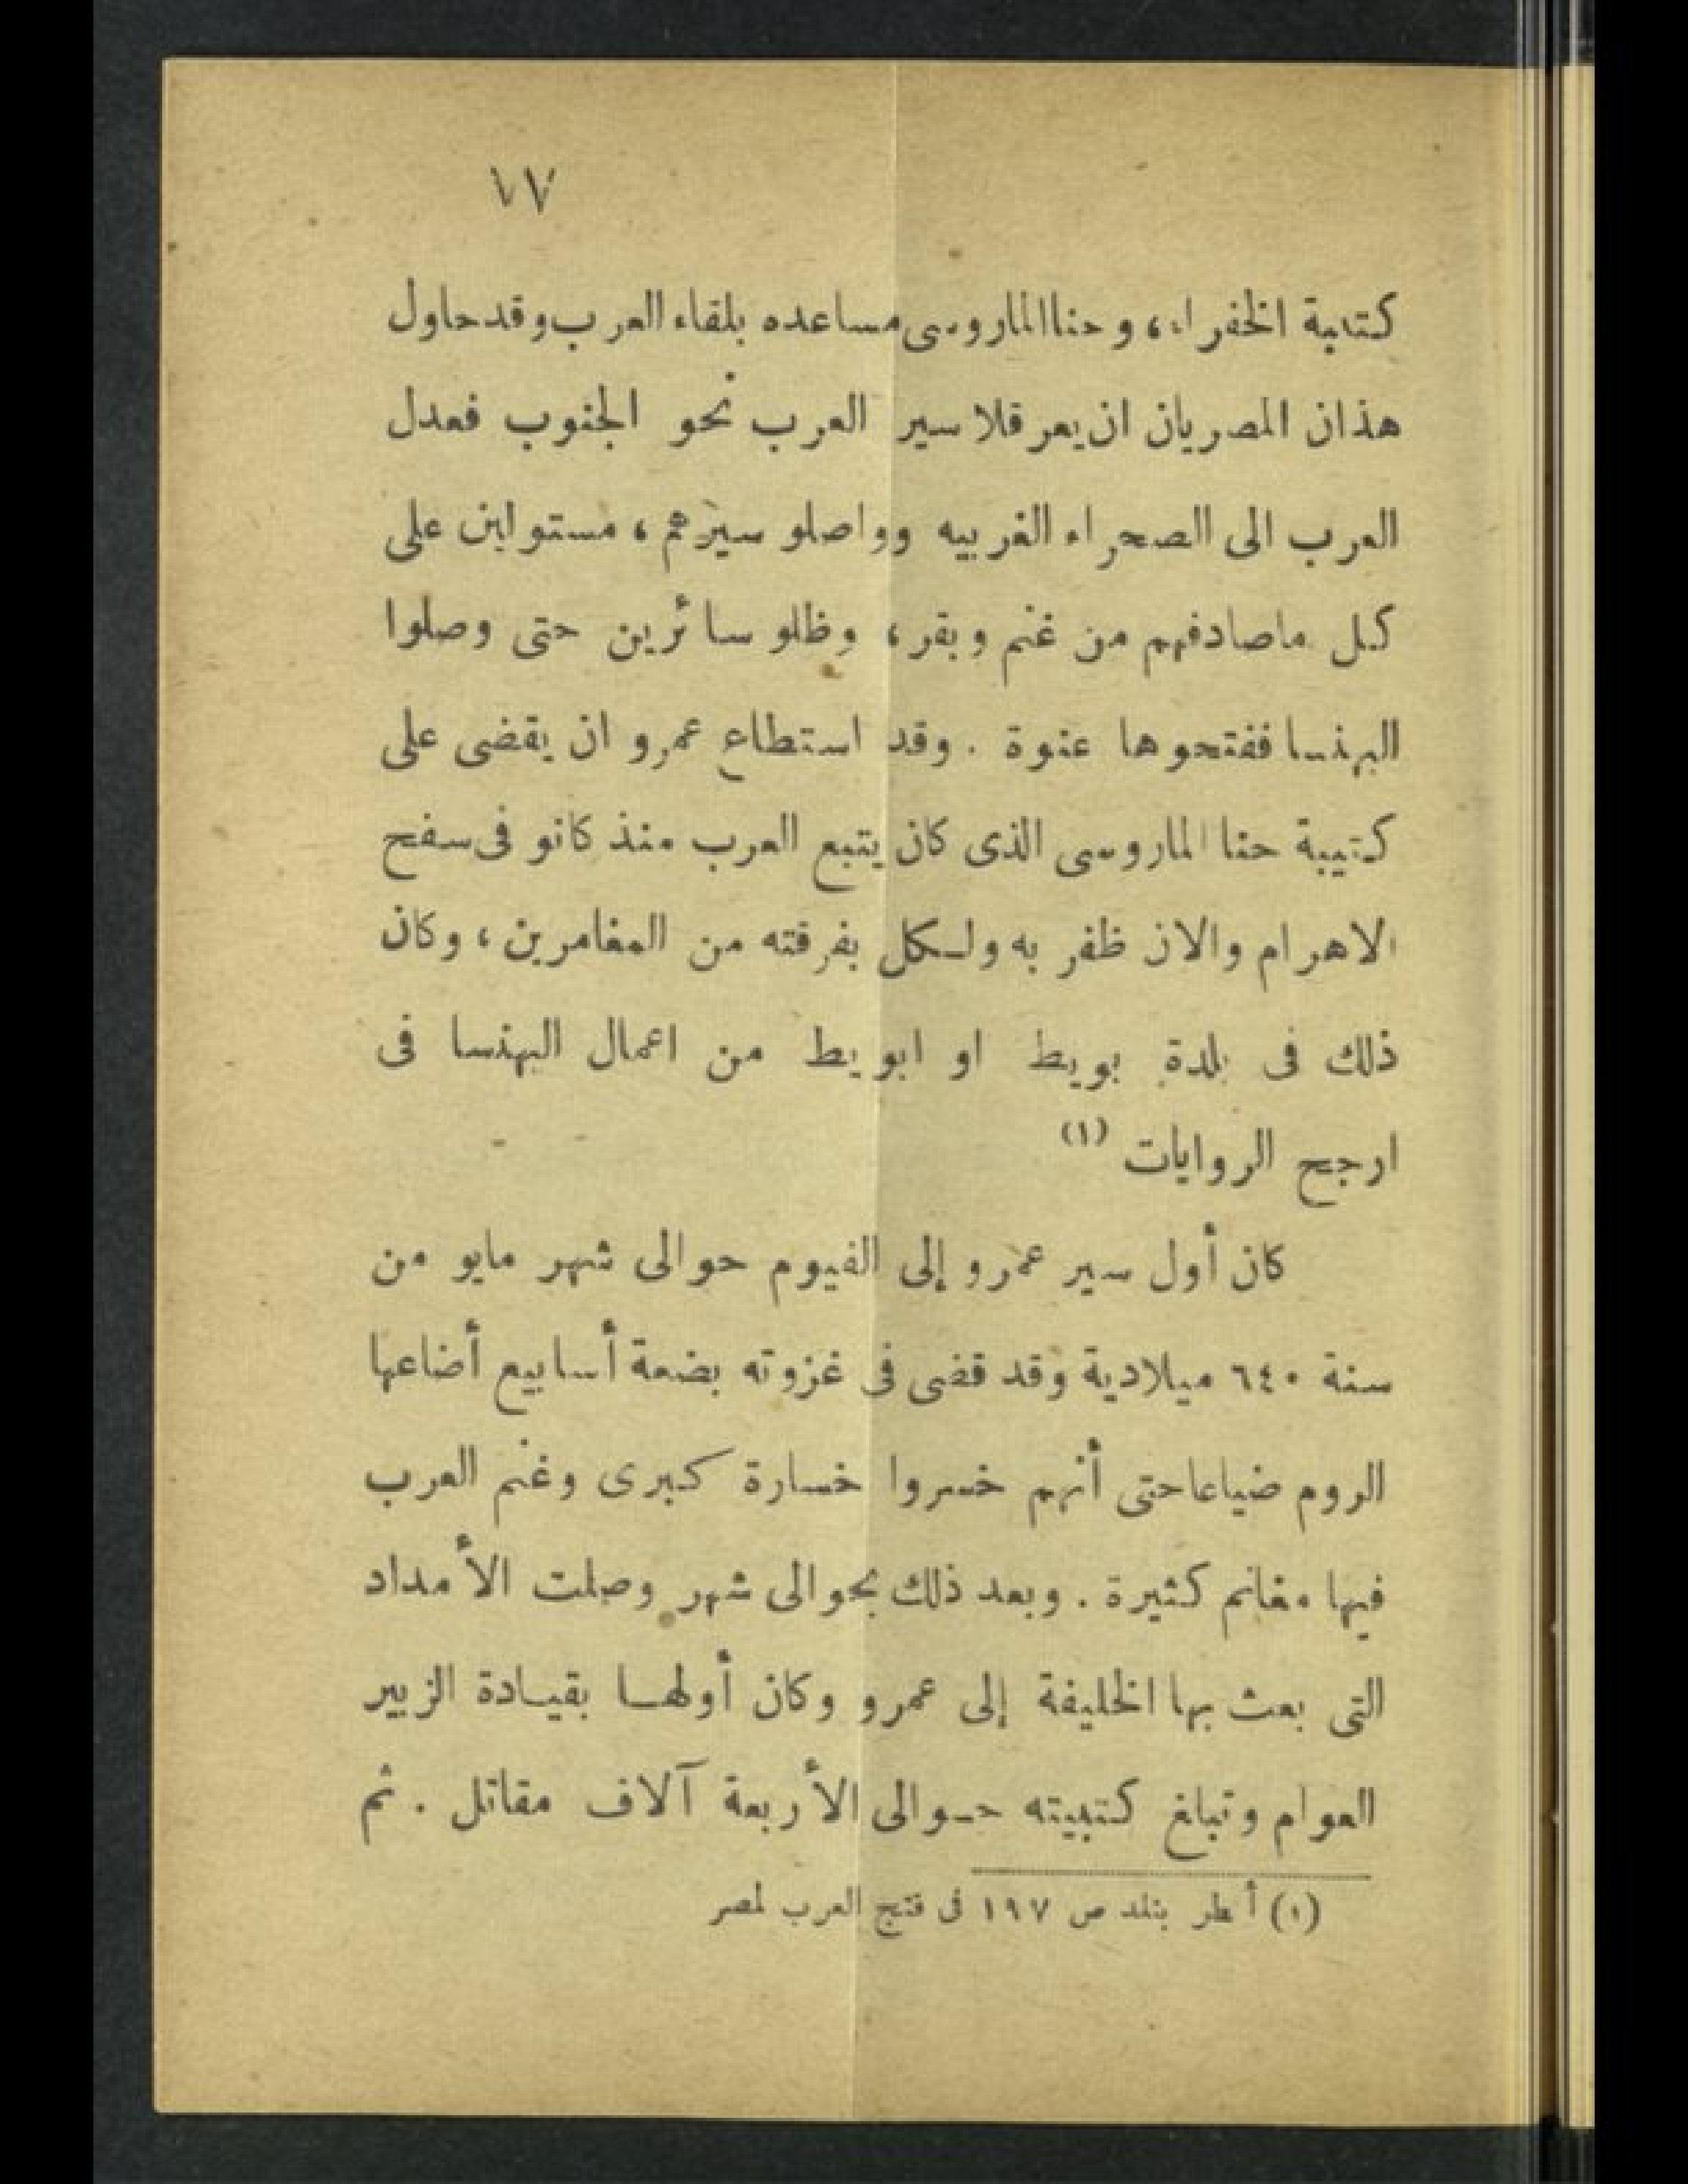 ١٧
كتابة الخفراء، وحنا الماروسى مساعده بلقاء العرب وقد حاول
هذان المصريان ان يعرقلا سير العرب نحو الجنوب فعدل
العرب الى الصحراء الغربيه وواصلو سيرهم، مستولين على
كل ماصادفهم من غنم وبقر، وظلو سائرين حتى وصلوا
البهنسا ففتحوها عنوة . وقد استطاع عمرو ان يقضى على
كتيبة حنا الماروسى الذى كان يتبع العرب منذ كانو فى سفح
الاهرام والان ظفر به ولكل بفرقته من المغامرين، وكان
ذلك فى بلدة بويط او ابويط من اعمال البهنسا فى
ارجح الروايات (١)
كان أول سير عمرو إلى الفيوم حوالى شهر مايو من
سنة ٦٤٠ ميلادية وقد قضى فى غزوته بضعة أسابيع أضاعها
الروم ضياعا حتى أنهم خسروا خسارة كبرى وغنم العرب
فيها مغانم كثيرة . وبعد ذلك بحوالى شهر وصلت الأمداد
التى بعث بها الخليفة إلى عمرو وكان أولها بقيادة الزبير
العوام وتبلغ كتيبته حوالى الأربعة آلاف مقاتل . ثم
(١) أنظر بتلر ص ١٩٧ فى فتح العرب لمصر